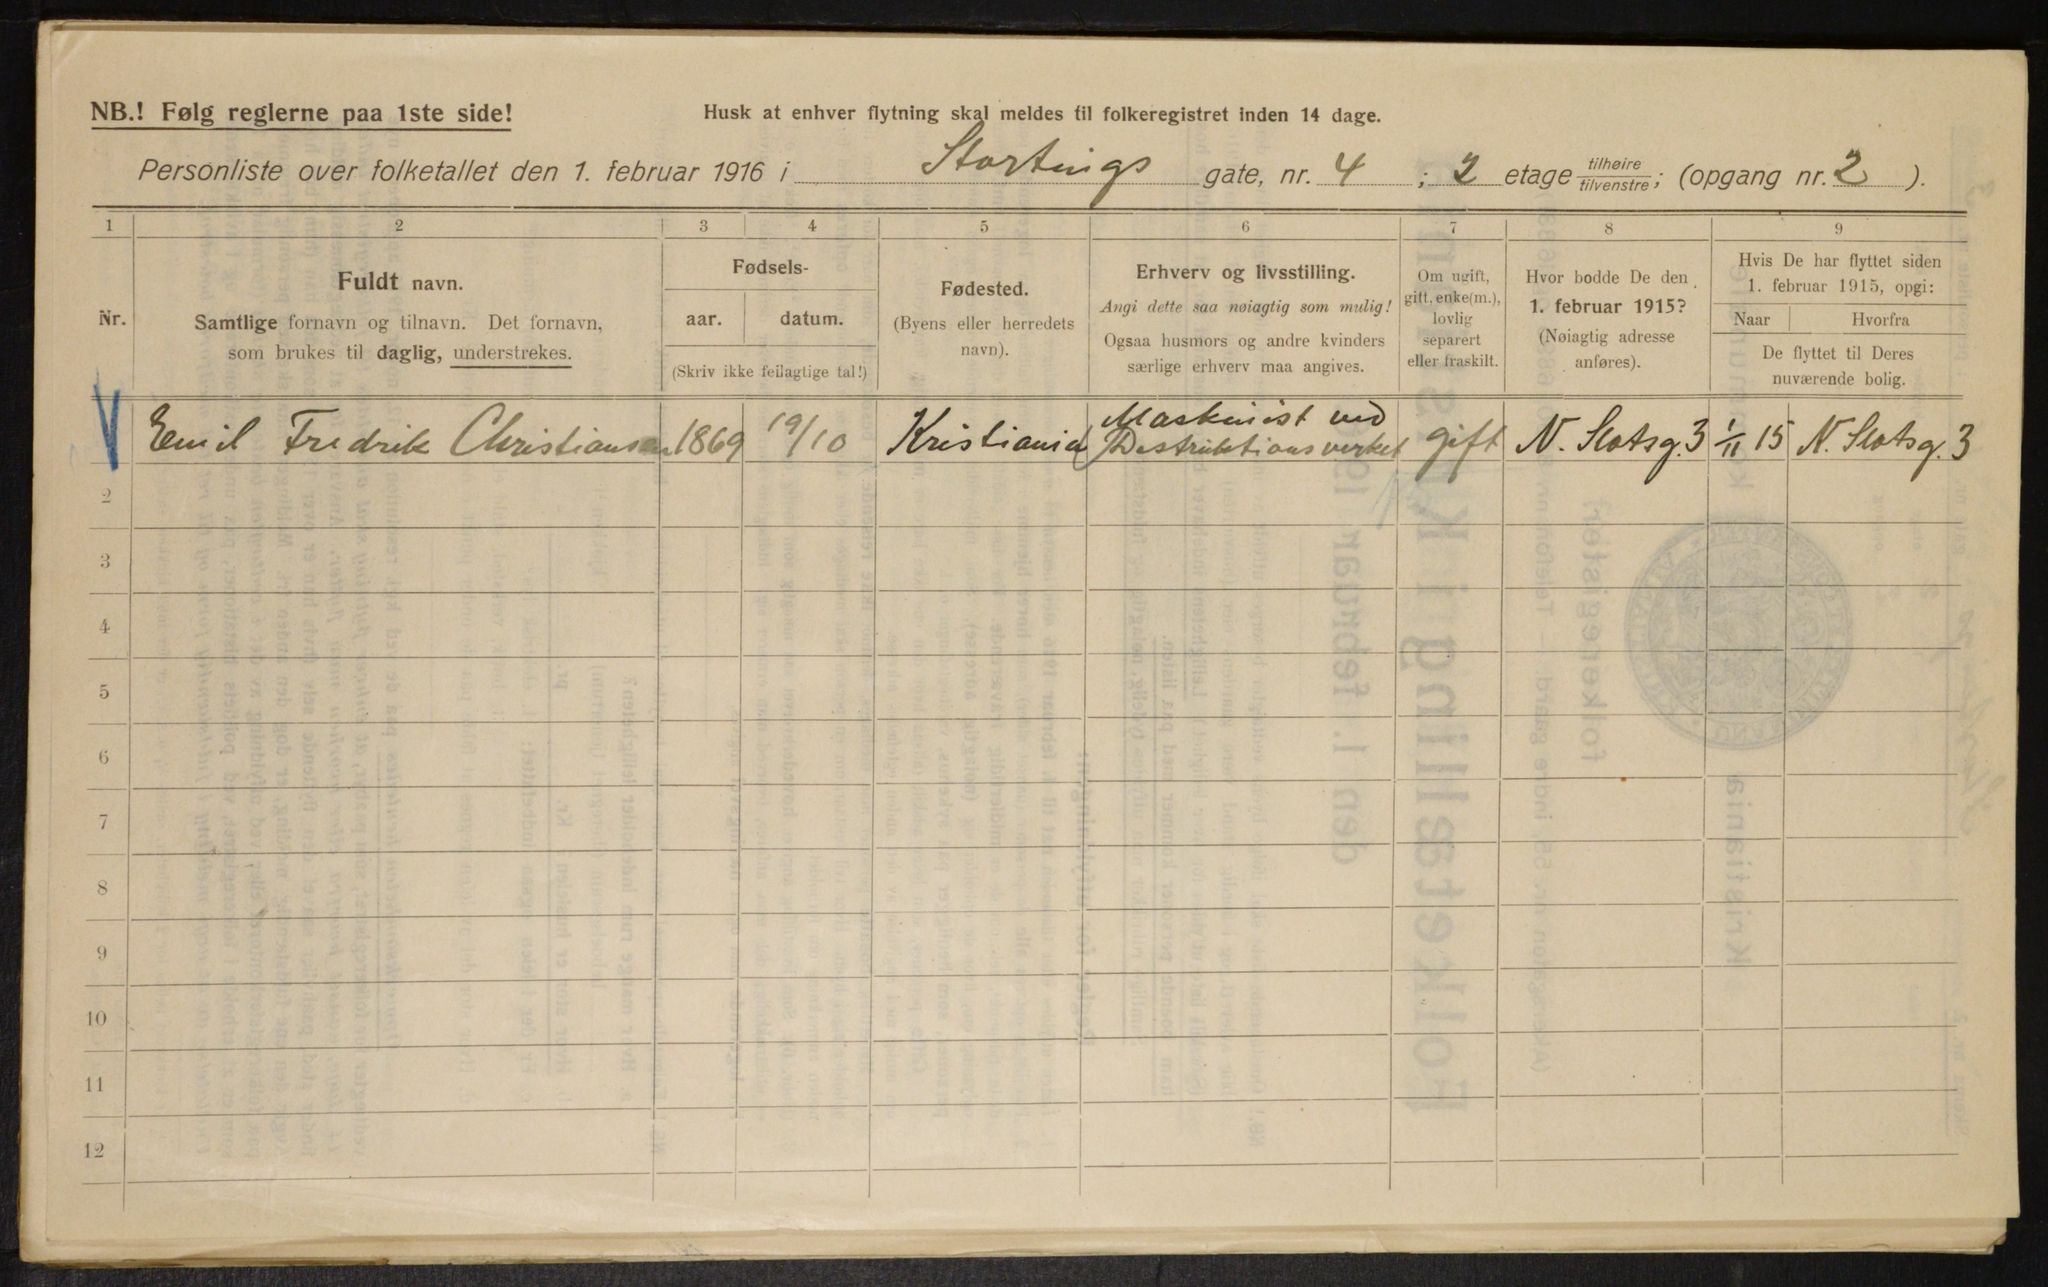 NB.! Følg reglerne paa 1ste side!
Husk at enhver flytning skal meldes til folkeregistret inden 14 dage.
Personliste over folketallet den 1. februar 1916 i Stortings gate, nr. 4 ; 2 etage tilhøire/tilvenstre; (opgang nr. 2 ).
1 2 3 4 5 6 7 8 9
Nr.
Fuldt navn.
Samtlige fornavn og tilnavn. Det fornavn,
som brukes til daglig, understrekes.
Fødsels-
aar. datum.
(Skriv ikke feilagtige tal!)
Fødested.
(Byens eller herredets
navn).
Erhverv og livsstilling.
Angi dette saa nøiagtig som mulig!
Ogsaa husmors og andre kvinders
særlige erhverv maa angives.
Om ugift,
gift, enke(m.),
lovlig
separert
eller fraskilt.
Hvor bodde De den
1. februar 1915?
(Nøiagtig adresse
anføres).
Hvis De har flyttet siden
1. februar 1915, opgi:
Naar Hvorfra
De flyttet til Deres
nuværende bolig.
Emil Fredrik Christiansen 1869 19/10 Kristiania Maskinist ved Destruktionsverket gift N. Slotsg. 3 1/11 15 N. Slotsg. 3
2
3
4
5
6
7
8
9
10
11
12